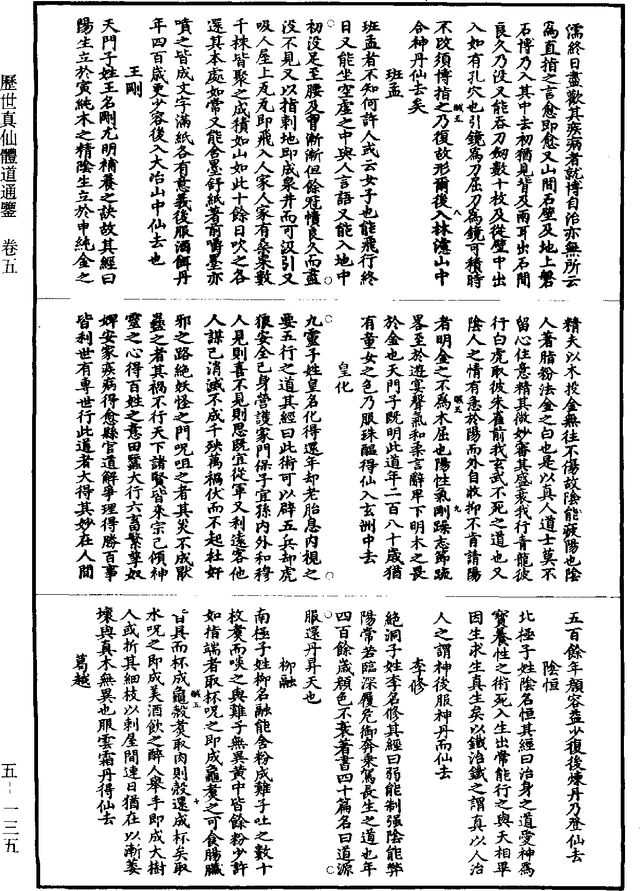 歷世真仙體道通鑒 卷五
五-一三五
濡終日盡歡其疾病者就博自治亦無所云
為直指之言愈即愈又山間石壁及地上磐
石博乃入其中去初猶見背及兩耳出石間
良久乃沒又能吞刀劍數十枚及從壁中出
入如有孔穴也引鏡為刀屈刀為鏡可積時
不改須博指之乃復故形爾後入林慮山中
合神丹仙去矣
班孟
班孟者不知何許人或云女子也能飛行終
日又能坐空虛之中與人言語又能入地中
初沒足至腰及胷漸漸但餘冠幘良久而盡
沒不見又以指刺地即成泉井而可汲引又
吸人屋上瓦瓦即飛入人家人家有桑果數
千株皆聚之成積如山如此十餘日吹之各
還其本處如常又能含墨舒紙著前嚼墨亦
噴之皆成文字滿紙各有意義後服酒餌丹
年四百歲更少容後入大治山中仙去也
王剛
天門子姓王名剛尤明補養之訣故其經曰
陽生立於寅純木之精陰生立於申純金之
精夫以木投金無往不傷故陰能疲陽也陰
人著脂粉法金之白也是以真人道士莫不
留心任意精其微妙審其盛衰我行青龍彼
行白虎取彼朱雀前我玄武不死之道也又
陰人之情有急於陽而外自收抑不肯請陽
者明金之不為木屈也陽性氣剛躁志節疏
畧至於遊宴聲氣和柔言辭卑下明木之畏
於金也天門子既明此道年二百八十歲猶
有童女之色乃服珠醞得仙入玄洲中去
皇化
九靈子姓皇名化得還年却老胎息內視之
要五行之道其經曰此術可以辟五兵却虎
狼安全己身營護家門保子宜孫內外和穆
人見則喜不見則思既宜從軍又利遠客他
人謀己消滅不成千殃萬禍伏而不起杜奸
邪之路絶妖怪之門呪咀之者其災不成厭
蠱之者其禍不行天下諸賢皆來宗己傾神
靈之心得百姓之意田蠶大行六畜繁孳奴
婢安家疾病得愈縣官道解爭理得勝百事
皆利世有專世行此道者大得其妙在人間
五百餘年顏容益少復後煉丹乃登仙去
陰恒
北極子姓陰名恒其經曰治身之道愛神為
寶養性之術死入生出常能行之與天相畢
因生求生真生矣以鐵治鐵之謂真以人治
人之謂神後服神丹而仙去
李修
絶洞子姓李名修其經曰弱能制强陰能弊
陽常若臨深履危御奔乘駕長生之道也年
四百餘歲顏色不衰著書四十篇名曰道源
服還丹昇天也
柳融
南極子姓柳名融能含粉成雞子吐之數十
枚煑而啖之與雞子無異黃中皆餘粉少許
如指端者取杯呪之即成龜煑之可食腸臟
皆具而杯成龜殼煑取肉則殼還成杯矣取
水呪之即成美酒飲之醉人舉手即成大樹
人或折其細枝以刺屋間連日猶在以漸萎
壞與真木無異也服雲霜丹得仙去
葛越